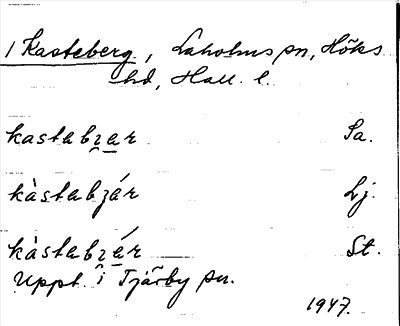 1 Kasteberg, Laholms sn, Höks
hd, Hall. l.
kastabzar Sa.
kàstabzár Lj.
kàstabzár St.
Uppt. i Tjärby sn.
1947.